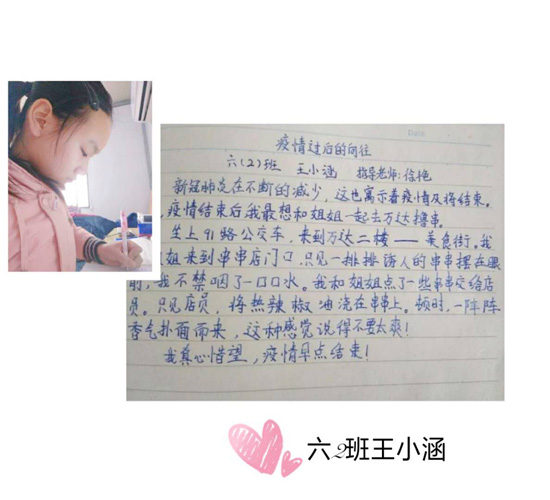 Date
疫情过后的向往
六(2)班 王小涵 指导老师:徐艳
新冠肺炎在不断的减少,这也寓示着疫情及将结束。
疫情结束后我最想和姐姐一起去万达撸串。
坐上91路公交车,来到万达二楼——美食街,我
姐来到串串店门口,只见一排排诱人的串串摆在眼
前,我不禁咽了一口口水。我和姐姐点了一些串串交给店
员。只见店员,将热辣椒油浇在串串上。顿时,一阵阵
香气扑面而来,这种感觉说得不要太爽!
我真心惜望,疫情早点结束!
六2班王小涵